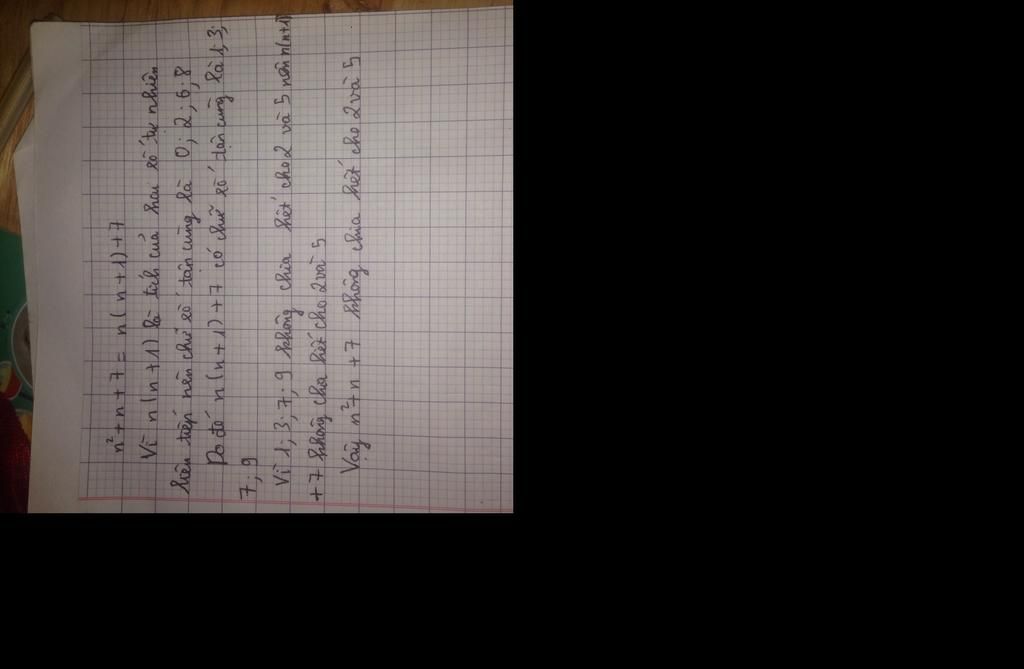 n² + n + 7 = n(n+1)+7
Vì n(n+1) là tích của hai số tự nhiên
liên tiếp nên chữ số tận cùng là 0; 2; 6; 8
Do đó n(n+1)+7 có chữ số tận cùng là 1; 3;
7; 9
Vì 1; 3; 7; 9 không chia hết cho 2 và 5 nên n(n+1)
+7 không chia hết cho 2 và 5
Vậy n²+n +7 không chia hết cho 2 và 5